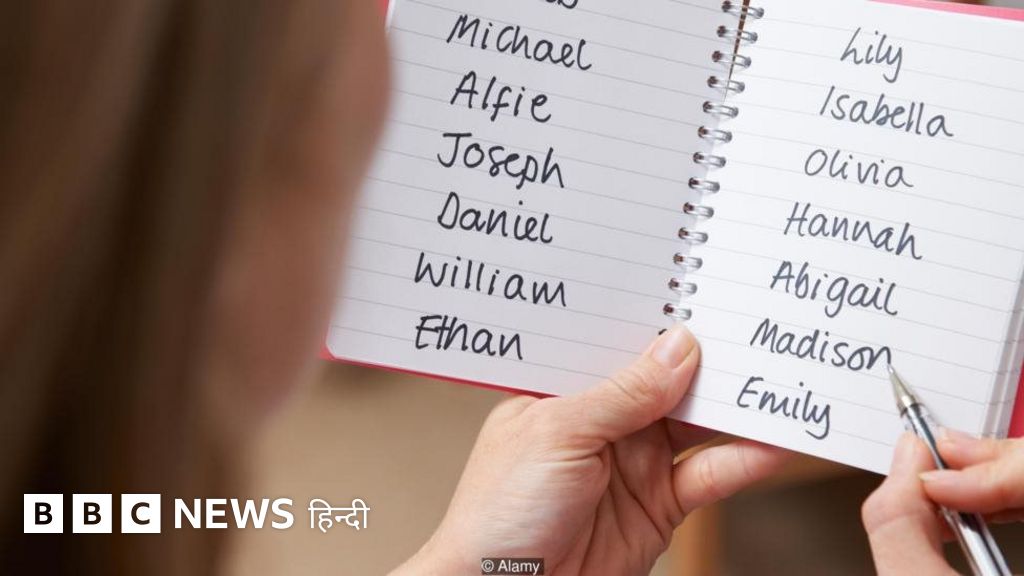 Michael
Alfie
Joseph
Daniel
William
Ethan
Lily
Isabella
Olivia
Hannah
Abigail
Madison
Emily
BBC NEWS हिन्दी
© Alamy